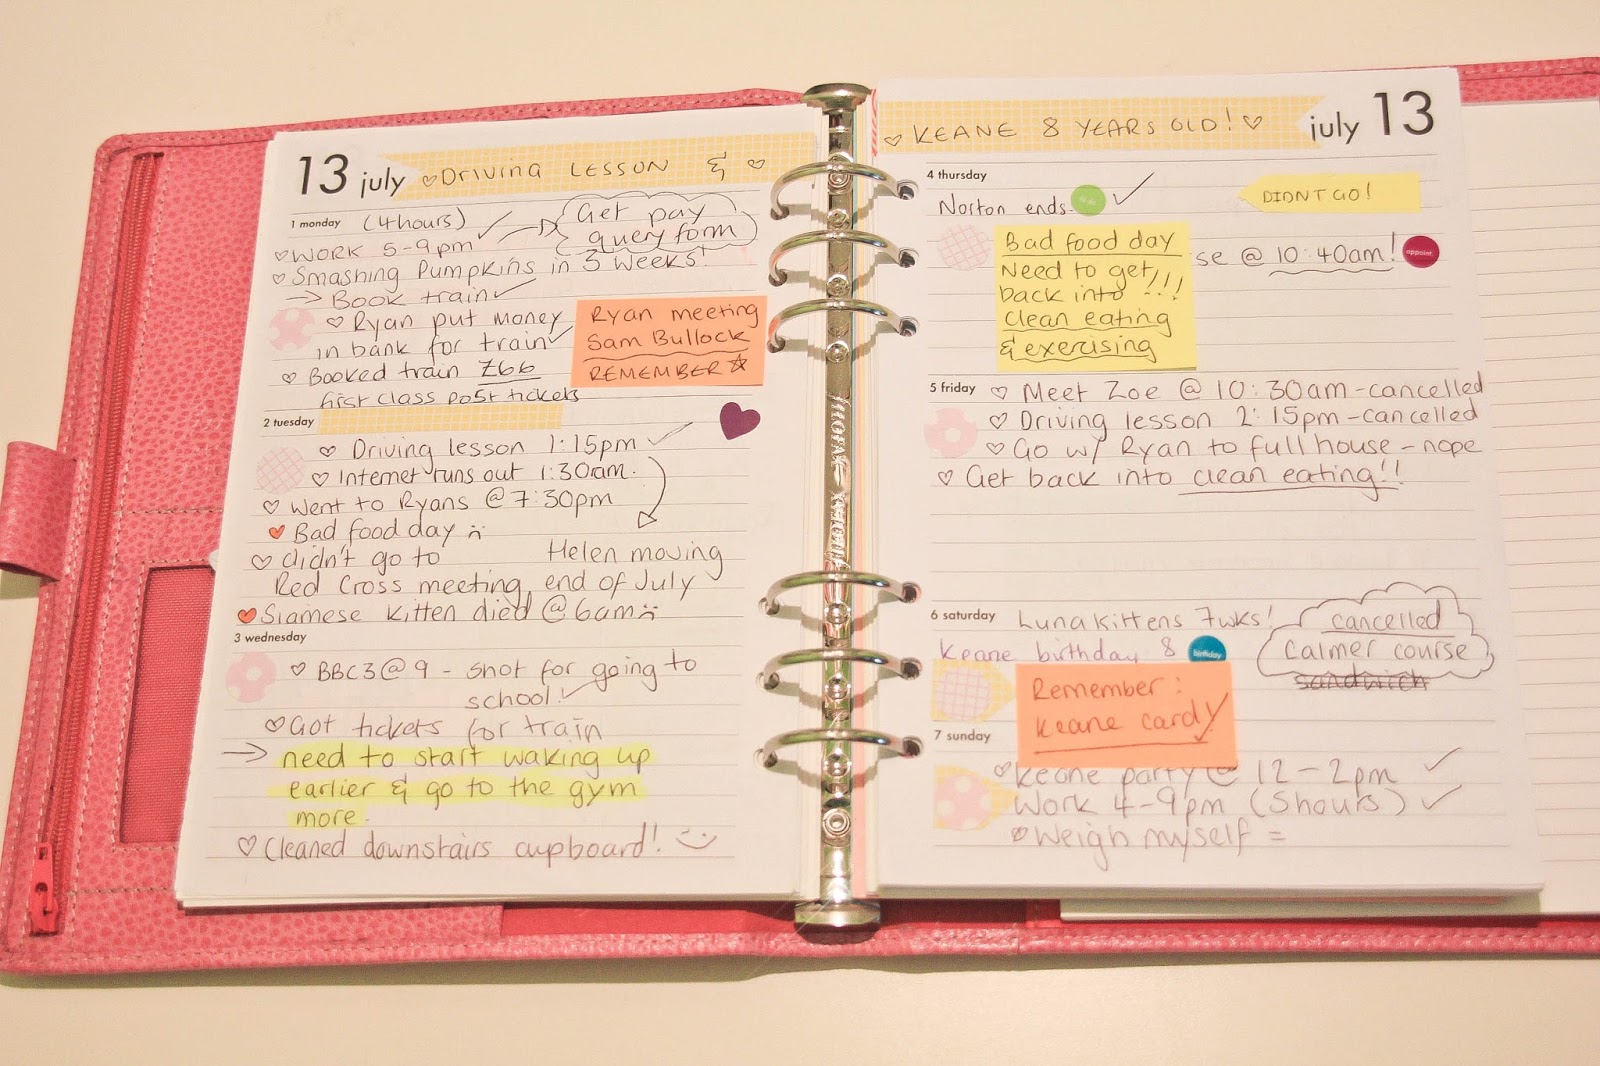 13 july
DRIVING LESSON &
1 monday
(4hours)
WORK 5-9pm
Get pay
query form
Smashing Pumpkins in 3 weeks!
Book train
Ryan put money
in bank for train
Booked train £66
first class post tickets
Ryan meeting
Sam Bullock
REMEMBER
2 tuesday
Driving lesson 1:15pm
Internet runs out 1:30am.
Went to Ryans @ 7:30pm
Bad food day
didn't go to
Red Cross meeting
Helen moving
end of July
Siamese kitten died @ 6am
3 wednesday
BBC3 @ 9 - Shot for going to
school
Got tickets for train
need to start waking up
earlier & go to the gym
more.
Cleaned downstairs cupboard!
FILOFAX
KEANE 8 YEARS OLD!
july 13
4 thursday
Norton ends
DIDNT GO!
Bad food day
Need to get
back into !!!
clean eating
& exercising
se @ 10:40am!
appoint.
5 friday
Meet Zoe @ 10:30am-cancelled
Driving lesson 2:15pm-cancelled
Go w/ Ryan to full house - nope
Get back into clean eating!!
6 saturday
Luna kittens 7wks!
Keane birthday 8
birthday
cancelled
Calmer course
sandwich
Remember:
Keane card
7 sunday
Keane party @ 12-2pm
Work 4-9pm (5hours)
Weigh myself =